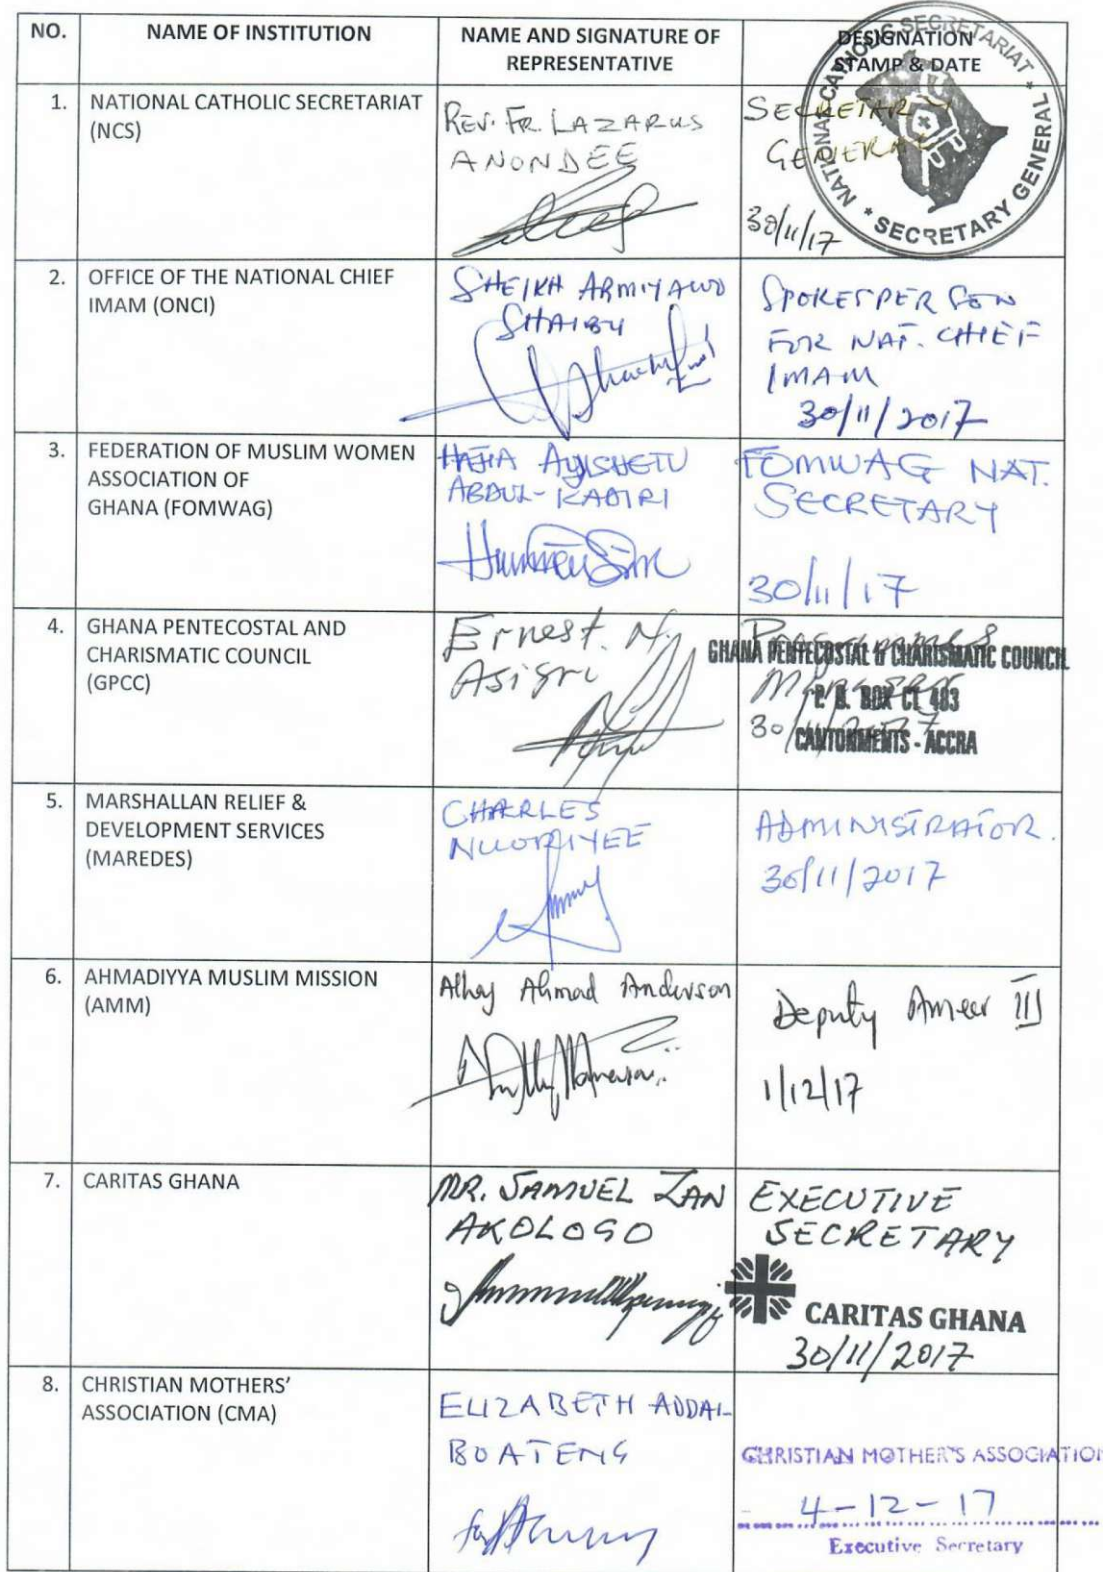 NO.
NAME OF INSTITUTION
NAME AND SIGNATURE OF
REPRESENTATIVE
DESIGNATION
STAMP & DATE
1.
NATIONAL CATHOLIC SECRETARIAT
(NCS)
REV. FR. LAZARUS
ANONDEE
SECRETARY
GENERAL
30/11/17
NATIONAL CATHOLIC SECRETARIAT * SECRETARY GENERAL *
2.
OFFICE OF THE NATIONAL CHIEF
IMAM (ONCI)
SHEIKH ARMIYAWO
SHAIBU
SPOKESPERSON
FOR NAT. CHIEF
IMAM
30/11/2017
3.
FEDERATION OF MUSLIM WOMEN
ASSOCIATION OF
GHANA (FOMWAG)
HAJIA AYISHETU
ABDUL-KADIRI
FOMWAG NAT.
SECRETARY
30/11/17
4.
GHANA PENTECOSTAL AND
CHARISMATIC COUNCIL
(GPCC)
Ernest. N.
Asigri
Programmes
Manager
30/11/2017
GHANA PENTECOSTAL & CHARISMATIC COUNCIL
P. O. BOX CT 483
CANTONMENTS - ACCRA
5.
MARSHALLAN RELIEF &
DEVELOPMENT SERVICES
(MAREDES)
CHARLES
NUORIYEE
ADMINISTRATOR.
30/11/2017
6.
AHMADIYYA MUSLIM MISSION
(AMM)
Alhaj Ahmad Anderson
Deputy Ameer III
1/12/17
7.
CARITAS GHANA
MR. SAMUEL ZAN
AKOLOGO
EXECUTIVE
SECRETARY
CARITAS GHANA
30/11/2017
8.
CHRISTIAN MOTHERS'
ASSOCIATION (CMA)
ELIZABETH ADDAI-
BOATENG
CHRISTIAN MOTHER'S ASSOCIATION
4-12-17
Executive Secretary